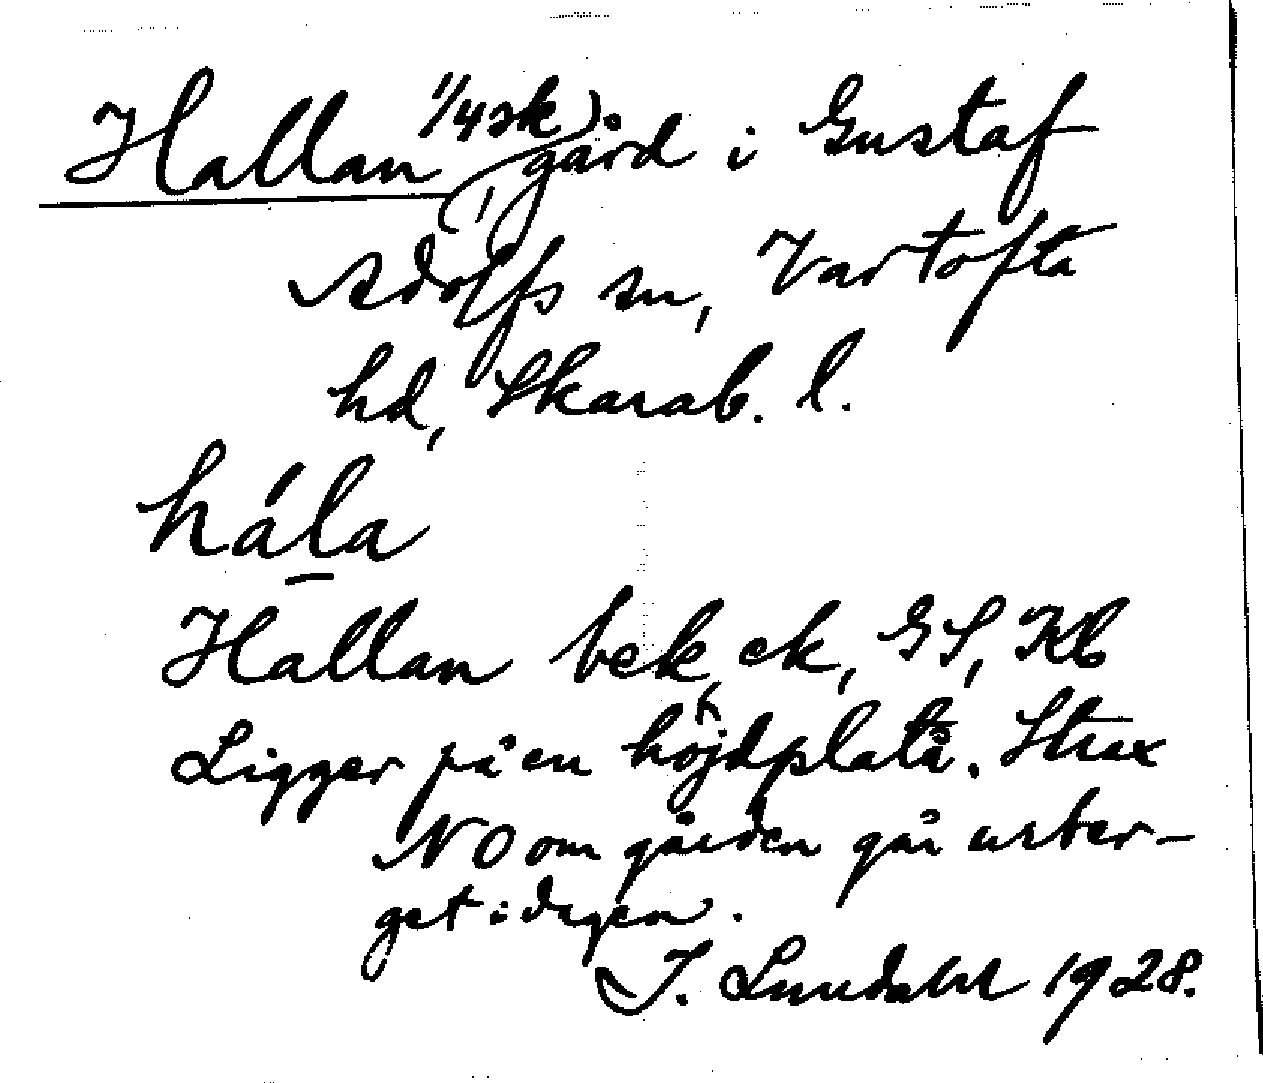 Hallan 1/4 sk), gård i Gustaf
Adolfs sn, Vartofta
hd, Skarab. l.
hála
Hallan bek, ek, GS, Kb
Ligger på en höjdplatå. Strax
NO om gården går urber-
get i dagen.
I. Lundahl 1928.